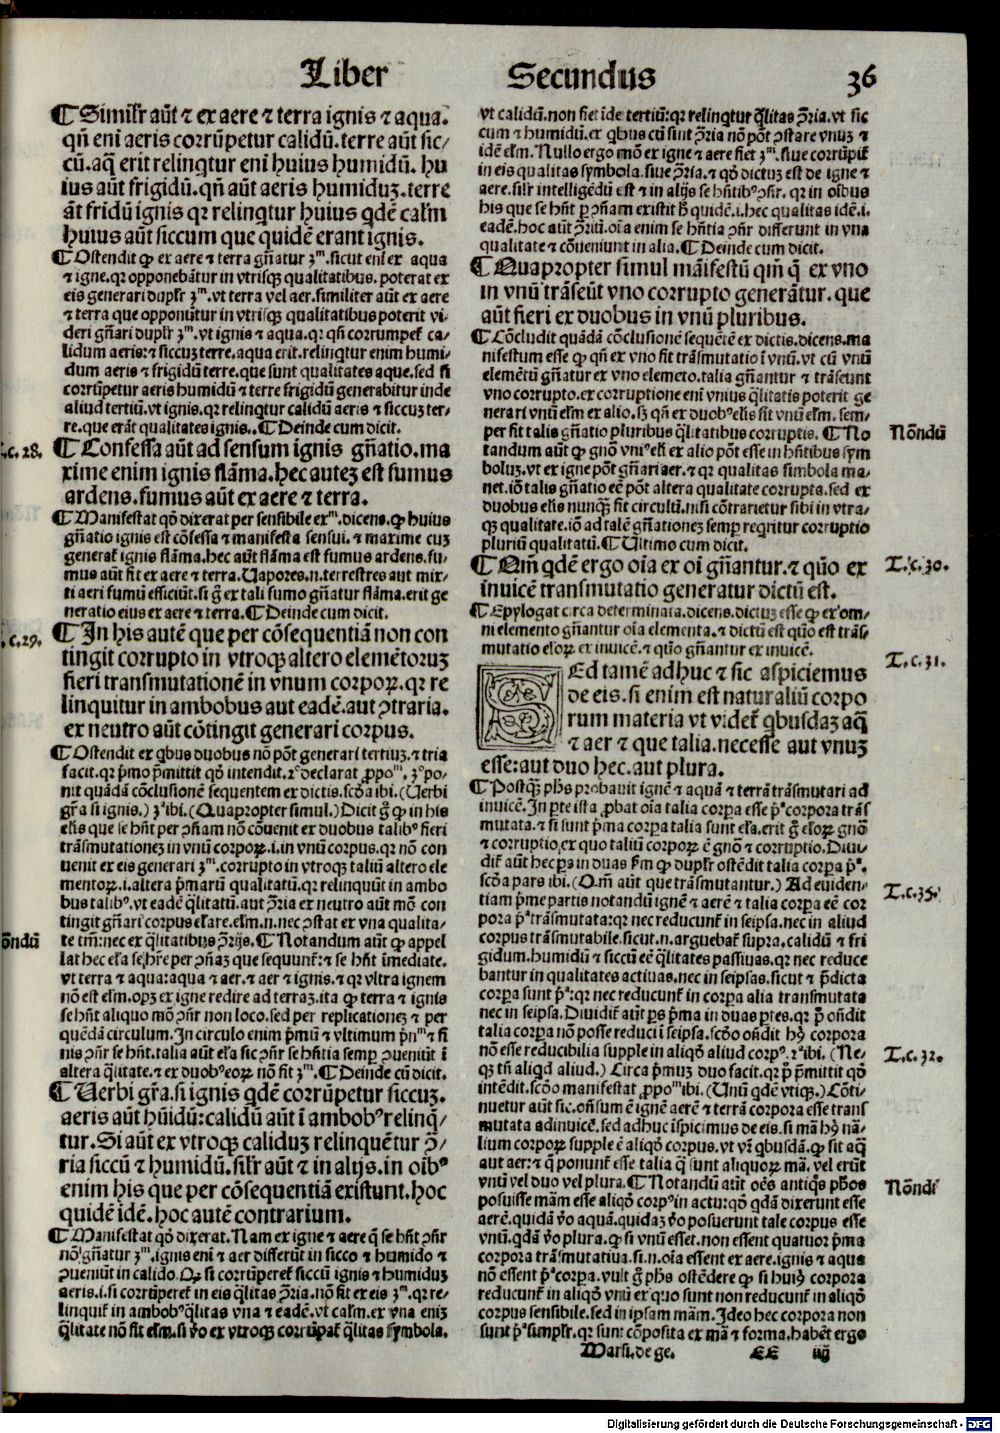 Liber Secundus 36
¶ Simil'r aūt ⁊ ex aere ⁊ terra ignis ⁊ aqua.
qn̄ eni aeris corrūpetur calidū. terre aūt sic/
cū. aq̄ erit relinqtur eni huius humidū. hu
ius aūt frigidū. qn̄ aūt aeris humiduʒ. terre
āt fridū ignis qꝛ relinqtur huius qdē cal'm
huius aūt siccum que quidē erant ignis.
¶ Ostendit ꝙ ex aere ⁊ terra gn̄atur ʒᵐ. sicut eni ex aqua
⁊ igne. qꝛ opponebātur in vtrisqꝫ qualitatibus. poterat ex
eis generari dupl'r ʒᵐ. vt terra vel aer. similiter aūt ex aere
⁊ terra que opponūtur in vtrisqꝫ qualitatibus poterit vi/
deri gn̄ari dupl'r ʒᵐ. vt ignis ⁊ aqua. qꝛ qn̄ corrumpet ca/
lidum aeris: ⁊ siccuʒ terre. aqua erit. relinqtur enim humi/
dum aeris ⁊ frigidū terre. que sunt qualitates aque. sed si
corrūpetur aeris humidū ⁊ terre frigidū generabitur inde
aliud tertiū. vt ignis. qꝛ relinqtur calidū aeris ⁊ siccuʒ ter/
re. que erāt qualitates ignis. ¶ Deinde cum dicit.
.c. 28. ¶ Confessa aūt ad sensum ignis gn̄atio. ma
xime enim ignis flāma. hec auteʒ est fumus
ardens. fumus aūt ex aere ⁊ terra.
¶ Manifestat qō dixerat per sensibile exᵐ. dicens. ꝙ huius
gn̄atio ignis est cōfessa ⁊ manifesta sensui. ⁊ maxime cuʒ
generat ignis flāma. hec aūt flāma est fumus ardens. fu/
mus aūt fit ex aere ⁊ terra. Uapores .n. terrestres aut mix/
ti aeri fumū efficiūt. si ḡ ex tali fumo gn̄atur flāma. erit ge
neratio eius ex aere ⁊ terra. ¶ Deinde cum dicit.
.c. 29. ¶ In his autē que per cōsequentiā non con
tingit corrupto in vtroqꝫ altero elemētoruʒ
fieri transmutationē in vnum corpoꝝ. qꝛ re
linquitur in ambobus aut eadē. aut ↄtraria.
ex neutro aūt cōtingit generari corpus.
¶ Ostendit ex qbus duobus nō pōt generari tertiuʒ. ⁊ tria
facit. qꝛ pꝛmo pꝛmittit qō intendit. 2° declarat ꝓpoᵐ. ʒ° po/
nit quādā cōclusionē sequentem ex dictis. scd̄a ibi. (Uerbi
gr̄a si ignis.) ʒᵃ ibi. (Quapropter simul.) Dicit ḡ ꝙ in his
el'is que se hn̄t per ↄn̄am nō cōuenit ex duobus talibꝰ fieri
trāsmutationeʒ in vnū corpoꝝ. i. in vnū corpus. qꝛ nō con
uenit ex eis generari ʒᵐ. corrupto in vtroqꝫ taliū altero ele
mentoꝝ. i. altera pꝛmarū qualitatū. qꝛ relinquūt in ambo
bus talibꝰ. vt eadē qlitatū. aut ↄ̄ria ex neutro aūt mō con
tingit gn̄ari corpus el'are. el'm .n. nec ↄstat ex vna qualita/
te tm̄: nec ex qlitatibus ↄ̄rijs. ¶ Notandum aūt ꝙ appel
lat hec el'a se hr̄e per ↄn̄aʒ que sequunt: ⁊ se hn̄t īmediate.
vt terra ⁊ aqua: aqua ⁊ aer. ⁊ aer ⁊ ignis. ⁊ qꝛ vltra ignem
nō est el'm. opʒ ex igne redire ad terraʒ. ita ꝙ terra ⁊ ignis
se hn̄t aliquo mō ↄn̄r non loco. sed per replicationeʒ ⁊ per
quēdā circulum. In circulo enim pꝛmū ⁊ vltimum pꝛnᵐ ⁊ fi
nis ↄn̄r se hn̄t. talia aūt el'a sic ↄn̄r se hn̄tia semp ꝓueniūt ī
altera qlitate. ⁊ ex duobꝰ eoꝝ nō fit ʒᵐ. ¶ Deinde cū dicit.
ōndū
¶ Uerbi gr̄a. si ignis qdē corrūpetur siccuʒ.
aeris aūt hūidū: calidū aūt ī ambobꝰ relinq̄/
tur. Si aūt ex vtroqꝫ caliduʒ relinquētur ↄ̄/
ria siccū ⁊ humidū. sil'r aūt ⁊ in alijs. in oībꝰ
enim his que per cōsequentiā existunt. hoc
quidē idē. hoc autē contrarium.
¶ Manifestat qō dixerat. Nam ex igne ⁊ aere q̄ se hn̄t ↄn̄r
nō gn̄atur ʒᵐ. ignis eni ⁊ aer differūt in sicco ⁊ humido ⁊
ↄueniūt in calido. Qꝫ si corrūperet siccū ignis ⁊ humiduʒ
aeris. i. si corrūperet in eis qlitas ↄ̄ria. nō fit ex eis ʒᵐ. qꝛ re/
linquit in ambobꝰ qlitas vna ⁊ eadē. vt cal'm. ex vna eniʒ
qlitate nō fit el'm. si v̄o ex vtroqꝫ corrūpat qlitas symbola.
vt calidū. non fiet ide tertiū: qꝛ relinqtur qlitas ↄ̄ria. vt sic
cum ⁊ humidū. ex qbus cū sint ↄ̄ria nō pōt ↄstare vnuʒ ⁊
idē el'm. Nullo ergo mō ex igne ⁊ aere fiet ʒᵐ. siue corrūpit
in eis qualitas symbola. siue ↄ̄ria. ⁊ qō dictuʒ est de igne ⁊
aere. sil'r intelligēdū est ⁊ in alijs se hn̄tibꝰ ↄn̄r. qꝛ in oībus
his que se hn̄t ꝑ ↄn̄am existit h̄ quidē. i. hec qualitas idē. i.
eadē. hoc aūt ↄ̄riū. oīa enim se hn̄tia ↄn̄r differunt in vna
qualitate ⁊ cōueniunt in alia. ¶ Deinde cum dicit.
¶ Quapropter simul māifestū qm̄ q̄ ex vno
in vnū trāseūt vno corrupto generātur. que
aūt fieri ex duobus in vnū pluribus.
¶ Cōcludit quādā cōclusionē sequētē ex dictis. dicens. ma
nifestum esse ꝙ qn̄ ex vno fit trāsmutatio ī vnū. vt cū vnū
elemētū gn̄atur ex vno elemēto. talia gn̄antur ⁊ trāseunt
vno corrupto. ex corruptione eni vnius qlitatis poterit ge
nerari vnū el'm ex alio. sʒ qn̄ ex duobꝰ el'is fit vnū el'm. sem/
per fit talis gn̄atio pluribus qlitatibus corruptis. ¶ No
tandum aūt ꝙ gn̄o vniꝰ el'i ex alio pōt esse in hn̄tibus sym
boluʒ. vt ex igne pōt gn̄ari aer. ⁊ qꝛ qualitas simbola ma/
net. iō talis gn̄atio eē pōt altera qualitate corrupta. sed ex
duobus el'is nunqꝫ fit circulū. nisi cōtrarietur sibi in vtra/
qꝫ qualitate. iō ad talē gn̄ationeʒ semp reqritur corruptio
pluriū qualitatū. ¶ Ultimo cum dicit.
Nōndū
¶ Qm̄ qdē ergo oīa ex oī gn̄antur. ⁊ quō ex
inuicē transmutatio generatur dictū est.
T.c. 30.
¶ Epylogat circa determinata. dicens. dictuʒ esse ꝙ ex om/
ni elemento gn̄antur oīa elementa. ⁊ dictū est quō est trās/
mutatio el'oꝝ ex inuicē. ⁊ quō gn̄antur ex inuicē.
T.c. 31.
SEd tamē adhuc ⁊ sic aspiciemus
de eis. si enim est naturaliū corpo
rum materia vt videt qbusdaʒ aq̄
⁊ aer ⁊ que talia. necesse aut vnuʒ
esse: aut duo hec. aut plura.
¶ Postqꝫ ph̄s probauit ignē ⁊ aquā ⁊ terrā trāsmutari ad
inuicē. In ꝑte ista ꝓbat oīa talia corpa esse pꝛᵃ corpora trās
mutata. ⁊ si sunt pꝛma corpa talia sunt el'a. erit ḡ el'oꝝ gn̄o
⁊ corruptio. ex quo taliū corpoꝝ ē gn̄o ⁊ corruptio. Diui/
dit aūt hec ps in duas pꝛm ꝙ dupl'r ostēdit talia corpa pꝛᵃ.
scd̄a pars ibi. (Om̄ aūt que trāsmutantur.) Ad euiden/
tiam pꝛme partis notandū ignē ⁊ aerē ⁊ talia corpa eē cor
pora pꝛᵃ trāsmutata: qꝛ nec reducunt in seipsa. nec in aliud
corpus trāsmutabile. sicut .n. arguebat supra. calidū ⁊ fri
gidum. humidū ⁊ siccū eē qlitates passiuas. qꝛ nec reduce
bantur in qualitates actiuas. nec in seipsas. sicut ⁊ pꝛdicta
corpa sunt pꝛᵃ: qꝛ nec reducunt in corpa alia transmutata
nec in seipsa. Diuidit aūt ps pꝛma in duas ptes. qꝛ pꝛ on̄dit
talia corpa nō posse reduci ī seipsa. scd̄o on̄dit hꝰ corpora
nō esse reducibilia supple in aliqō aliud corpꝰ. 2ᵃ ibi. (Ne/
qꝫ tn̄ aliqd aliud.) Circa pꝛmuʒ duo facit. qꝛ pꝛ pꝛmittit qō
intēdit. scd̄o manifestat ꝓpoᵐ ibi. (Unū qdē vtiqꝫ.) Cōti/
nuetur aūt sic. on̄sum ē ignē aerē ⁊ terrā corpora esse trans
mutata adinuicē. sed adhuc īspicimus de eis. si mā hꝰ nā/
lium corpoꝝ supple ē aliqō corpus. vt vr̄ qbusdā. ꝙ sit aq̄
aut aer: ⁊ q̄ ponunt esse talia q̄ sunt aliquoꝝ mā. vel erūt
vnū vel duo vel plura. ¶ Notandū aūt oēs antiqs ph̄os
posuisse mām esse aliqō corpꝰ in actu: qō qdā dixerunt esse
aerē. quidā v̄o aquā. quidaʒ v̄o posuerunt tale corpus esse
vnū. qdā v̄o plura. ꝙ si vnū esset. non essent quatuor pꝛma
corpora trāsmutatiua. si .n. oīa essent ex aere. ignis ⁊ aqua
nō essent pꝛᵃ corpa. vult ḡ ph̄s ostēdere ꝙ si huiꝰ corpora
reducunt in aliqō vnū ex quo sunt non reducunt in aliqō
corpus sensibile. sed in ipsam mām. Ideo hec corpora non
sunt pꝛᵃ simpl'r. qꝛ sunt cōposita ex mā ⁊ forma. habēt ergo
T.c. 35.
T.c. 32.
Nōndū
Marsi. de ge. EE iiij
Digitalisierung gefördert durch die Deutsche Forschungsgemeinschaft - DFG